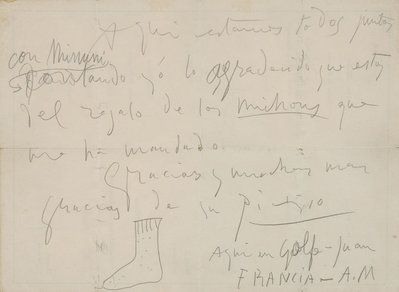 Aqui estamos todos juntos
con Minuni
yo lo agradecido que estoy
del regalo de los mitons que
me ha mandado
Gracias y muchas mas
gracias de su
Aqui en Golfe-Juan
FRANCIA - A.M